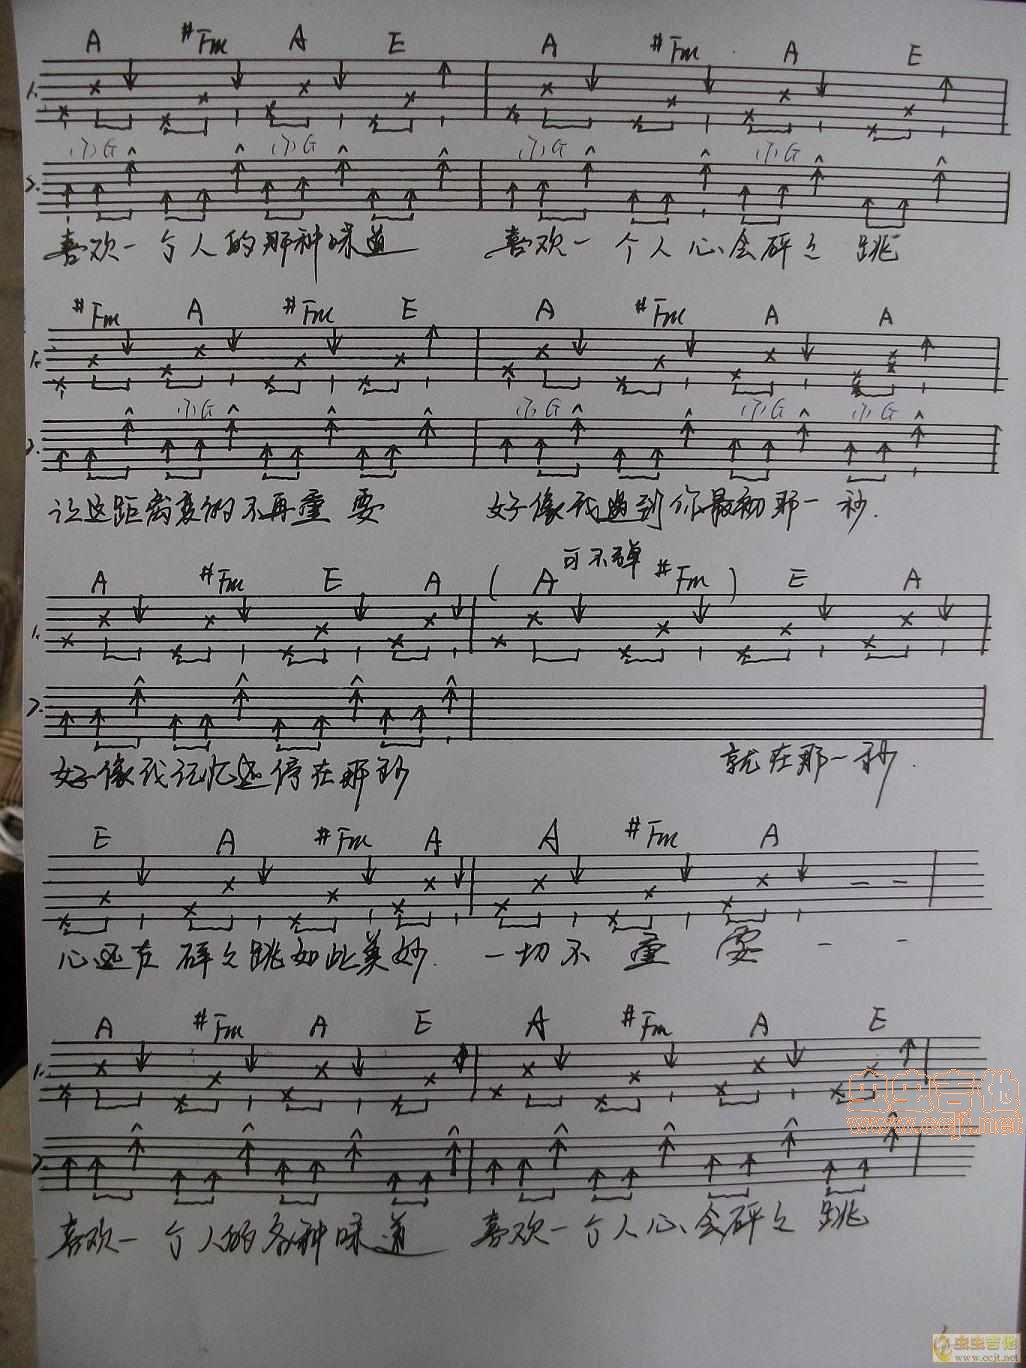 A #Fm A E A #Fm A E
1.
(不)G (不)G (不)G (不)G
2.
喜欢一个人的那种味道 喜欢一个人心会砰之跳
#Fm A #Fm E A #Fm A A
1.
(不)G (不)G (不)G (不)G
2.
让这距离变的不再重要 好像我遇到你最初那一秒.
可不弹
A #Fm E A (A #Fm) E A
1.
2.
好像我记忆还停在那秒 就在那一秒.
E A #Fm A A #Fm A
心还在砰之跳如此美妙. 一切不重要 - -
A #Fm A E A #Fm A E
1.
虫虫吉他
www.ccjt.net
2.
喜欢一个人的各种味道 喜欢一个人心会砰之跳
虫虫吉他
www.ccjt.net